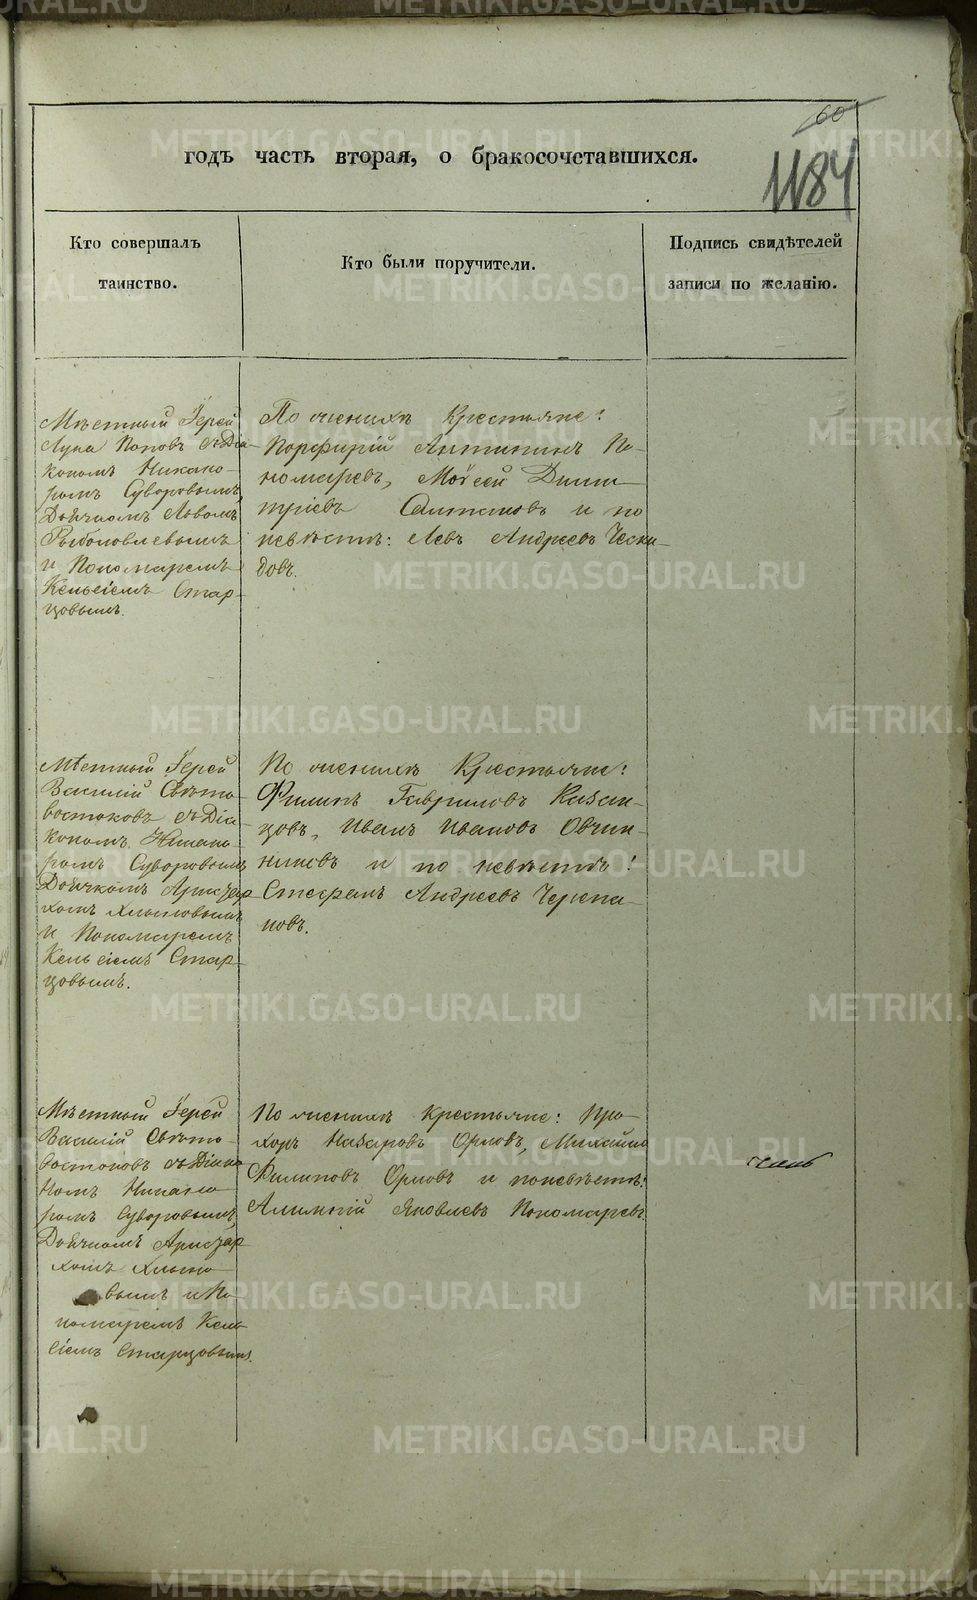 60
1184
годъ часть вторая, о бракосочетавшихся.
Кто совершалъ
таинство.
Кто были поручители.
Подпись свидѣтелей
записи по желанію.
Мѣстный Іерей
Лука Поповъ съ Діа-
кономъ Никано-
ромъ Суворовымъ,
Дьячкомъ Львомъ
Рыболовлевымъ
и Пономаремъ
Кельсіемъ Стар-
цовымъ.
По женихѣ Крестьяне:
Порфирій Антипинъ По-
номаревъ, Моѵсей Дими-
тріевъ и по
невѣстѣ: Левъ Андреевъ Чески-
довъ.
Мѣстный Іерей
Василій Свѣто-
востоковъ съ Діа-
кономъ Никано-
ромъ Суворовымъ
Дьячкомъ Аристар-
хомъ Хлыновымъ
и Пономаремъ
Кельсіемъ Стар-
цовымъ.
По женихѣ Крестьяне:
Филипъ Гавриловъ Казан-
цовъ, Иванъ Ивановъ Овчин-
никовъ и по невѣстѣ:
Стефанъ Андреевъ Черепа-
новъ.
Мѣстный Іерей
Василій Свѣто-
востоковъ съ Діако-
номъ Никано-
ромъ Суворовымъ,
Дьячкомъ Аристар-
хомъ Хлыно-
вымъ и По-
номаремъ Кель-
сіемъ Старцовымъ.
По женихѣ крестьяне: Про-
хоръ Назаровъ Орловъ, Михайло
Филиповъ Орловъ и по невѣстѣ:
Алимпій Яковлевъ Пономаревъ.
METRIKI.GASO-URAL.RU